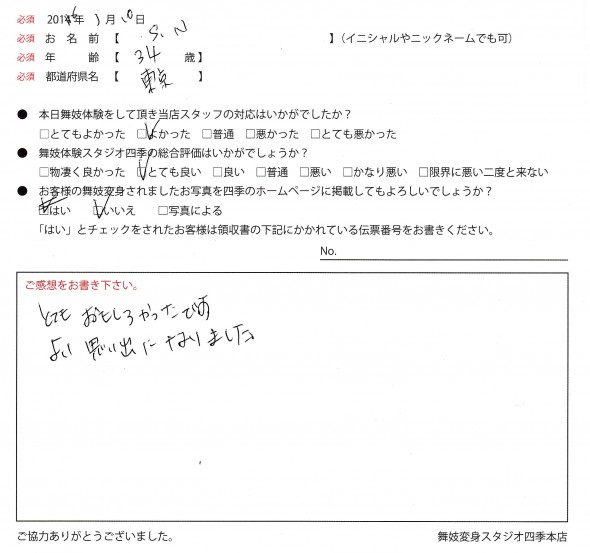 必須 201 年 1月10日
必須 お名前【 S.N 】(イニシャルやニックネームでも可)
必須 年齢【 34 歳】
必須 都道府県名【 東京 】
● 本日舞妓体験をして頂き当店スタッフの対応はいかがでしたか?
□とてもよかった □よかった □普通 □悪かった □とても悪かった
● 舞妓体験スタジオ四季の総合評価はいかがでしょうか?
□物凄く良かった □とても良い □良い □普通 □悪い □かなり悪い □限界に悪い二度と来ない
● お客様の舞妓変身されましたお写真を四季のホームページに掲載してもよろしいでしょうか?
□はい □いいえ □写真による
「はい」とチェックをされたお客様は領収書の下記にかかれている伝票番号をお書きください。
No.
ご感想をお書き下さい。
とても おもしろかったです
よい 思い出に なりました
ご協力ありがとうございました。 舞妓変身スタジオ四季本店